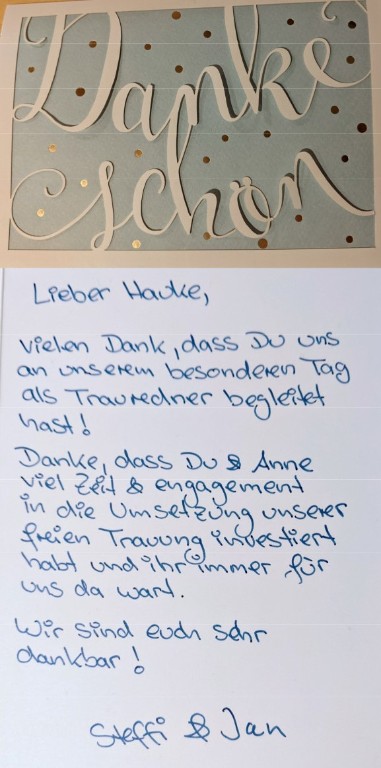 Danke
schön
Lieber Hauke,
vielen Dank, dass Du uns
an unserem besonderen Tag
als Trauredner begleitet
hast!
Danke, dass Du & Anne
viel Zeit & engagement
in die Umsetzung unserer
freien Trauung investiert
habt und ihr immer für
uns da wart.
Wir sind euch sehr
dankbar!
Steffi & Jan